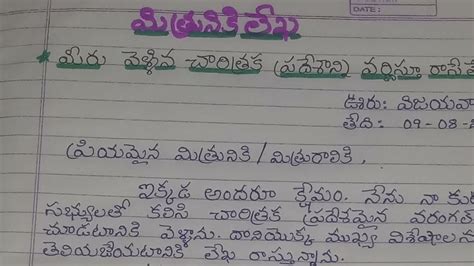 DATE:
మిత్రునికి లేఖ
* మీరు వెళ్లిన చారిత్రక ప్రదేశాని వర్ణిస్తూ రాసే
ఊరు: విజయవా
తేది: 09-08-
ప్రియమైన మిత్రునికి / మిత్రురాలికి,
ఇక్కడ అందరూ క్షేమం. నేను నా కు
సభ్యులతో కలిసి చారిత్రక ప్రదేశమైన వరంగ
చూడటానికి వెళ్ళాను. దానియొక్క ముఖ్య విశేషాలను
తెలియజేయటానికి లేఖ రాస్తున్నాను.